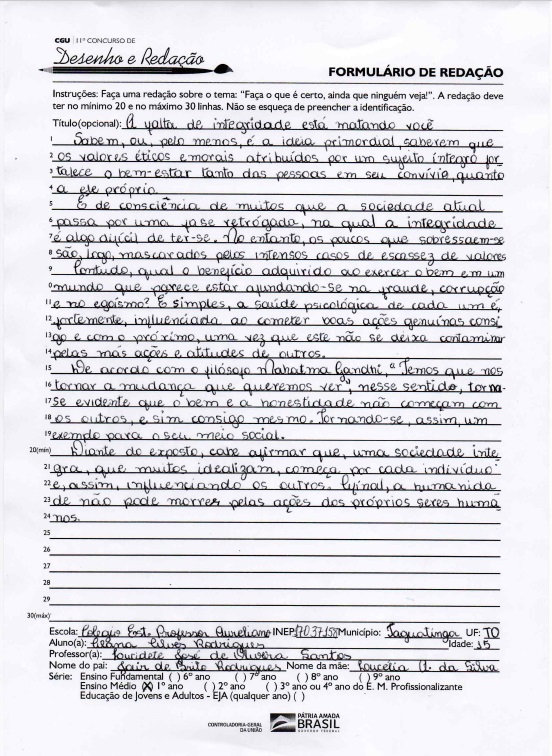 CGU | 11º CONCURSO DE
Desenho e Redação
FORMULÁRIO DE REDAÇÃO
Instruções: Faça uma redação sobre o tema: "Faça o que é certo, ainda que ninguém veja!". A redação deve
ter no mínimo 20 e no máximo 30 linhas. Não se esqueça de preencher a identificação.
Título(opcional): A falta de integridade está matando você
1 Sabem, ou, pelo menos, é a ideia primordial, saberem que
2 os valores éticos e morais atribuídos por um sujeito íntegro for
3 talece o bem-estar tanto das pessoas em seu convívio, quanto
4 a ele próprio.
5 É de consciência de muitos que a sociedade atual
6 passa por uma fase retrógada, na qual a integridade
7 é algo difícil de ter-se. No entanto, os poucos que sobressaem-se
8 são, logo, mascarados pelos intensos casos de escassez de valores
9 Contudo, qual o benefício adquirido ao exercer o bem em um
10 mundo que parece estar afundando-se na fraude, corrupção
11 e no egoísmo? É simples, a saúde psicológica de cada um é,
12 fortemente, influenciada ao cometer boas ações genuínas consi
13 go e com o próximo, uma vez que este não se deixa contaminar
14 pelas más ações e atitudes de outros.
15 De acordo com o filósofo Mahatma Gandhi, "Temos que nos
16 tornar a mudança que queremos ver", nesse sentido, torna-
17 se evidente que o bem e a honestidade não começam com
18 os outros, e sim consigo mesmo. Tornando-se, assim, um
19 exemplo para o seu meio social.
20(min) Diante do exposto, cabe afirmar que, uma sociedade ínte
21 gra, que muitos idealizam, começa por cada indivíduo
22 e, assim, influenciando os outros. Afinal, a humanida
23 de não pode morrer pelas ações dos próprios seres huma
24 nos.
25
26
27
28
29
30(máx)
Escola: Colegio Est. Professor Aureliano INEP: 17037158 Município: Taguatinga UF: TO
Aluno(a): Silva Rodrigues Idade: 15
Professor(a): Louridete José de Oliveira Santos
Nome do pai: Jair de Brito Rodrigues Nome da mãe: Loucelia A. da Silva
Série: Ensino Fundamental ( ) 6º ano ( ) 7º ano ( ) 8º ano ( ) 9º ano
Ensino Médio (X) 1º ano ( ) 2º ano ( ) 3º ano ou 4º ano do E. M. Profissionalizante
Educação de Jovens e Adultos - EJA (qualquer ano) ( )
CONTROLADORIA-GERAL
DA UNIÃO
PÁTRIA AMADA
BRASIL
GOVERNO FEDERAL